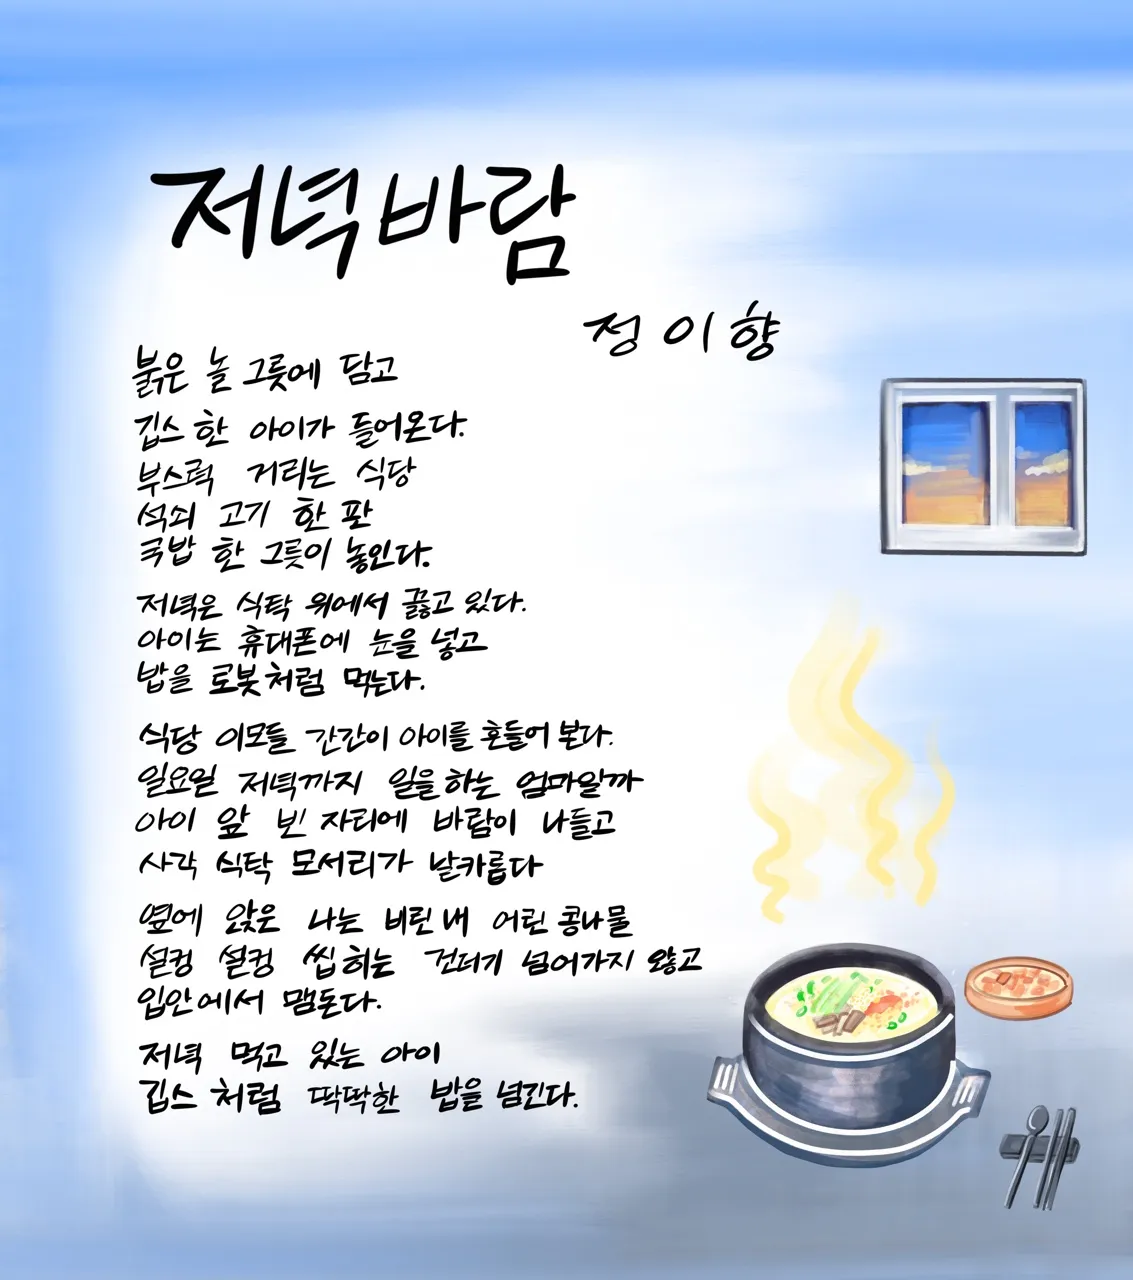 저녁바람
정이향
붉은 놀 그릇에 담고
깁스 한 아이가 들어온다.
부스럭 거리는 식당
석쇠 고기 한 판
국밥 한 그릇이 놓인다.
저녁은 식탁 위에서 끓고 있다.
아이는 휴대폰에 눈을 넣고
밥을 로봇처럼 먹는다.
식당 이모들 간간이 아이를 흔들어 본다.
일요일 저녁까지 일을 하는 엄마일까
아이 앞 빈 자리에 바람이 나들고
사각 식탁 모서리가 날카롭다
옆에 앉은 나는 비린내 어린 콩나물
설컹 설컹 씹히는 건더기 넘어가지 않고
입안에서 맴돈다.
저녁 먹고 있는 아이
깁스 처럼 딱딱한 밥을 넘긴다.